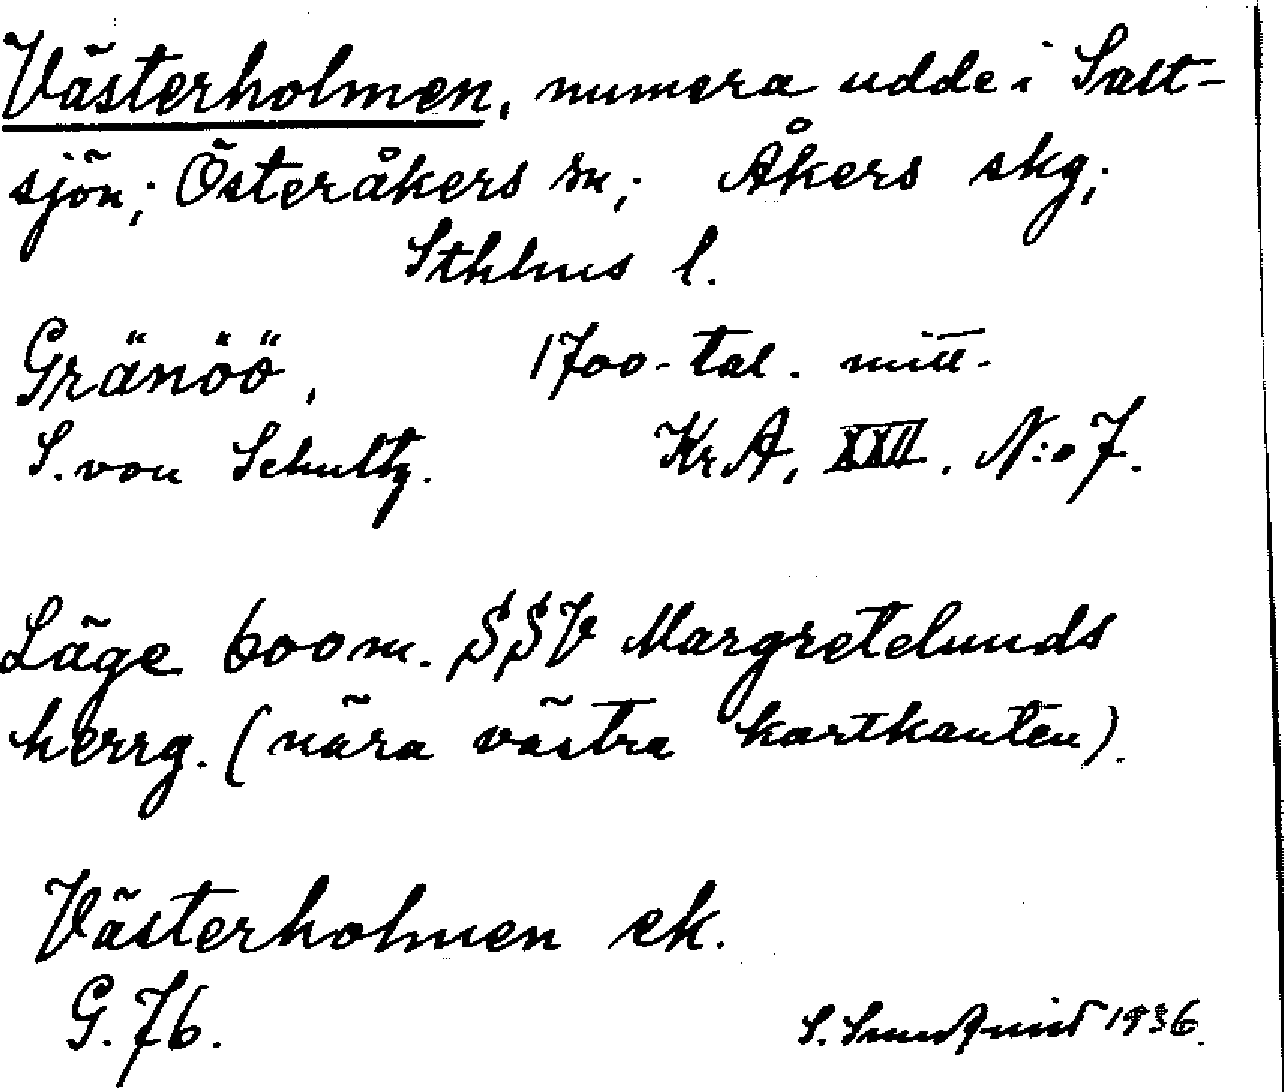 Västerholmen, numera udde i Salt-
sjön; Österåkers sn; Åkers skg;
Sthlms l.
Gränöö, 1700-tal. mitt.
S. von Schultz. KrA, XXII. N:o 7.
Läge 600 m. SSV Margretelunds
herrg. (nära västra kartkanten).
Västerholmen ek.
G. 76.
S. 1936.